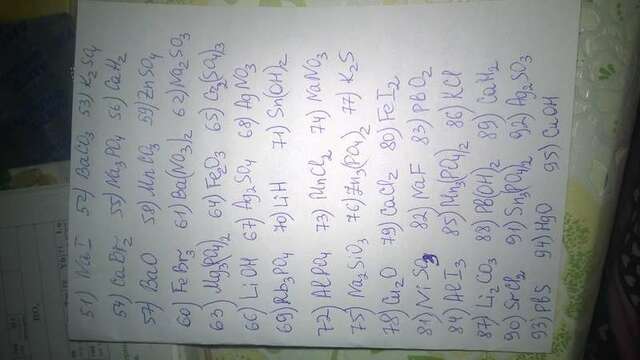 51) NaI 52) BaCO3 53) K2SO4
54) CaBr2 55) Na3PO4 56) CaH2
57) BaO 58) MnCO3 59) ZnSO4
60) FeBr3 61) Ba(NO3)2 62) Na2SO3
63) Mg3(PO4)2 64) Fe2O3 65) Cr2(SO4)3
66) LiOH 67) Ag2SO4 68) AgNO3
69) Rb3PO4 70) LiH 71) Sn(OH)2
72) AlPO4 73) MnCl2 74) NaNO3
75) Na2SiO3 76) Zn3(PO4)2 77) K2S
78) Cu2O 79) CaCl2 80) FeI2
81) NiSO3 82) NaF 83) PbO2
84) AlI3 85) Mn3(PO4)2 86) KCl
87) Li2CO3 88) Pb(OH)2 89) CaH2
90) SrCl2 91) Sn3(PO4)2 92) Ag2SO3
93) PbS 94) HgO 95) CuOH